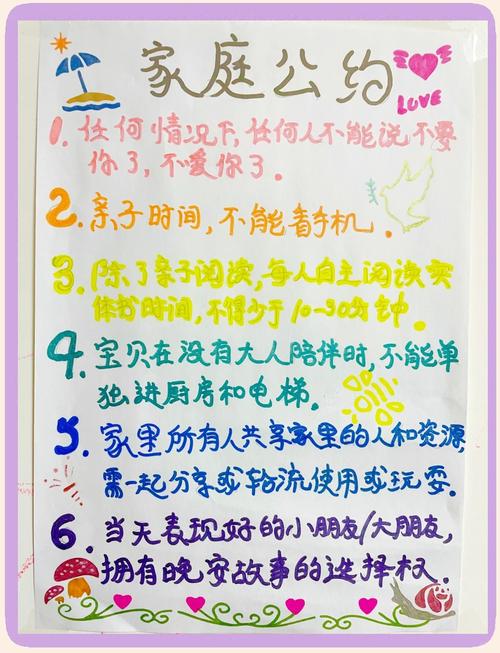 家庭公约
LOVE
1. 任何情况下,任何人不能说不要
你了,不爱你了。
2. 亲子时间,不能看手机。
3. 除了亲子阅读,每人自主阅读实
体书时间,不得少于10-30分钟。
4. 宝贝在没有大人陪伴时,不能单
独进厨房和电梯。
5. 家里所有人共享家里的人和资源
需一起分享或轮流使用或玩耍。
6. 当天表现好的小朋友/大朋友,
拥有晚安故事的选择权.